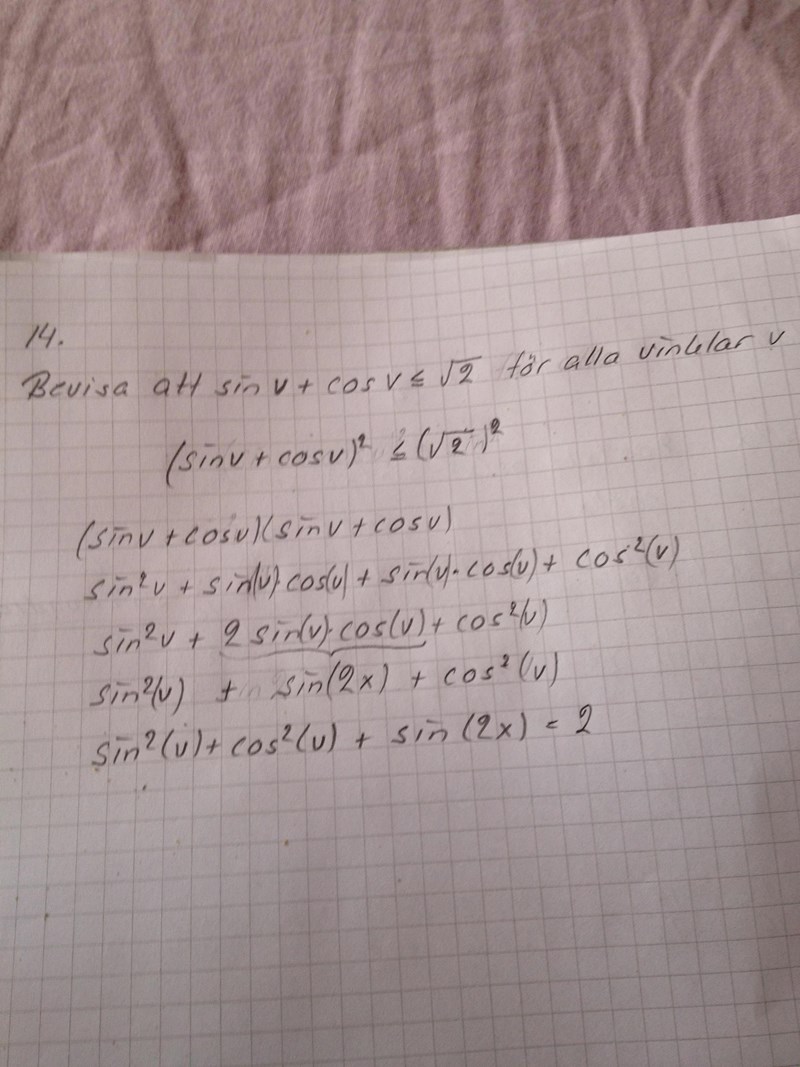 14.
Bevisa att sin v + cos v ≤ √2 för alla vinklar v
(sinv + cosv)² ≤ (√2)²
(sinv + cosv)(sinv + cosv)
sin²v + sin(v)·cos(v) + sin(v)·cos(v) + cos²(v)
sin²v + 2 sin(v)·cos(v) + cos²(v)
sin²(v) + sin(2x) + cos²(v)
sin²(v) + cos²(v) + sin(2x) = 2